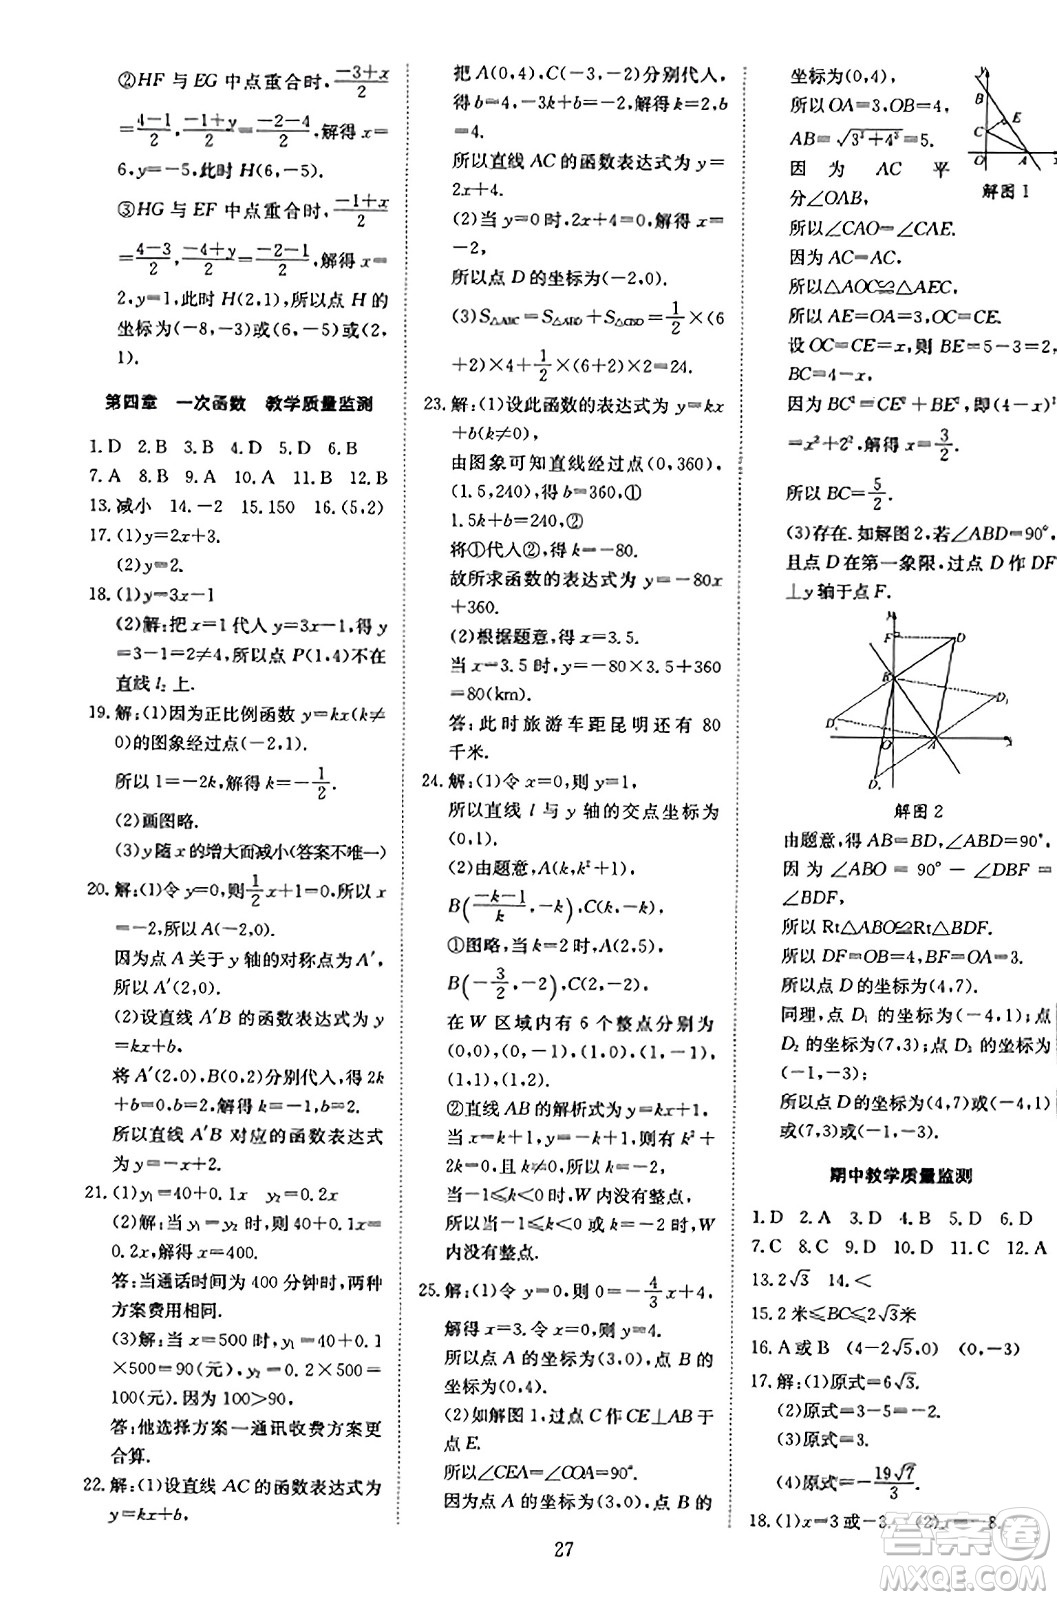 ②HF 与 EG 中点重合时,(-3+x)/2
=(4-1)/2,(-1+y)/2=(-2-4)/2,解得 x=
6,y=-5,此时 H(6,-5).
③HG 与 EF 中点重合时,(-1+x)/2
=(4-3)/2,(-4+y)/2=(-2-1)/2,解得 x=
2,y=1,此时 H(2,1),所以点 H 的
坐标为(-8,-3)或(6,-5)或(2,
1).
第四章 一次函数 教学质量监测
1.D 2.B 3.B 4.D 5.D 6.B
7.A 8.B 9.A 10.A 11.B 12.B
13.减小 14.-2 15.150 16.(5,2)
17.(1)y=2x+3.
(2)y=2.
18.(1)y=3x-1
(2)解:把 x=1 代人 y=3x-1,得 y
=3-1=2≠4,所以点 P(1,4)不在
直线 l₂ 上.
19.解:(1)因为正比例函数 y=kx(k≠
0)的图象经过点(-2,1).
所以 1=-2k,解得 k=-1/2.
(2)画图略.
(3)y 随 x 的增大而减小(答案不唯一)
20.解:(1)令 y=0,则1/2x+1=0,解得 x
=-2,所以 A(-2,0).
因为点 A 关于 y 轴的对称点为 A′,
所以 A′(2,0).
(2)设直线 A′B 的函数表达式为 y
=kx+b,
将 A′(2.0),B(0,2)分别代人,得 2k
+b=0,b=2,解得 k=-1.
所以直线 A′B 对应的函数表达式
为 y=-x+2.
21.(1)y₁=40+0.1x y₂=0.2x
(2)解:当 y₁=y₂ 时,40+0.1x=
0.2x,解得 x=400.
答:当通话时间为 400 分钟时,两种
方案费用相同.
(3)解:当 x=500 时,y₁=40+0.1
×500=90(元),y₂=0.2×500=
100(元).因为 100>90.
答:他选择方案一通讯收费方案更
合算.
22.解:(1)设直线 AC 的函数表达式为
y=kx+b,
把 A(0,4),C(-3,-2)分别代人,
得 b=4,-3k+b=-2,解得 k=2,b
=4.
所以直线 AC 的函数表达式为 y=
2x+4.
(2)当 y=0时,2x+4=0,解得 x=
-2,
所以点 D 的坐标为(-2,0).
(3)S△ABC=S△ABD+S△CBD=1/2×(6
+2)×4+1/2×(6+2)×2=24.
23.解:(1)设此函数的表达式为 y=kx
+b(k≠0),
由图象可知直线经过点(0,360),
(1.5,240),得 b=360,①
1.5k+b=240,②
将①代人②,解得 k=-80.
故所求函数的表达式为 y=-80x
+360.
(2)根据题意,得 x=3.5.
当 x=3.5 时,y=-80×3.5+360
=80(km).
答:此时旅游车距昆明还有 80
千米.
24.解:(1)令 x=0,则 y=1,
所以直线 l 与 y 轴的交点坐标为
(0,1).
(2)由题意,A(k,k²+1),
B((-k-1)/k,-k),C(k,-k),
①图略,当 k=2 时,A(2,5),
B(-3/2,-2),C(2,-2),
在 W 区域内有 6 个整点分别为
(0,0),(0,-1),(1,0),(1,-1),
(1,1),(1,2).
②直线 AB 的解析式为 y=kx+1,
当 x=k+1 时,y=-k+1,则有 k²+
2k=0,k=-2,
当-1≤k<0 时,W 内没有整点,
所以当-1≤k<0 或 k=-2 时,W
内没有整点.
25.解:(1)令 y=0,则 0=-4/3x+4,
解得 x=3.令x=0,则 y=4.
所以点 A 的坐标为(3,0),点 B 的
坐标为(0,4).
(2)如解图 1,过点 C 作 CE⊥AB 于
点 E.
所以∠CEA=∠COA=90°.
因为点 A 的坐标为(3,0),点 B 的
坐标为(0,4),
所以 OA=3,OB=4,
AB=√(3²+4²)=5.
因为 AC 平
分∠OAB,
所以∠CAO=∠CAE.
因为 AC=AC.
所以△AOC≌△AEC,
所以 AE=OA=3,OC=CE.
设 OC=CE=x,则 BE=5-3=2,
BC=4-x,
因为 BC²=CE²+BE²,即(4-x)²
=x²+2²,解得 x=3/2.
所以 BC=5/2.
(3)存在.如解图 2,若∠ABD=90°,
且点 D 在第一象限,过点 D 作 DF
⊥y 轴于点 F.
y
B
C
E
O
A
x
解图 1
y
F
D
B
D₁
O
A
x
解图 2
由题意,得 AB=BD,∠ABD=90°.
因为 ∠ABO = 90° - ∠DBF =
∠BDF,
所以 Rt△ABO≌Rt△BDF.
所以 DF=OB=4,BF=OA=3.
所以点 D 的坐标为(4,7).
同理,点 D₁ 的坐标为(-4,1);点
D₂ 的坐标为(7,3);点 D₃ 的坐标为
(-1,-3);
所以点 D 的坐标为(4,7)或(-4,1)
或(7,3)或(-1,-3).
期中教学质量监测
1.D 2.A 3.D 4.B 5.D 6.D
7.C 8.C 9.D 10.D 11.C 12.A
13.2√3 14.<
15.2 米≤BC≤2√3米
16.A 或 B (4-2√5,0) (0,-3)
17.解:(1)原式=6√3.
(2)原式=3-5=-2.
(3)原式=3.
(4)原式=-19√7/3.
18.(1)x=3 或-3. (2)x=-8.
27
答案圈
MXQE.COM